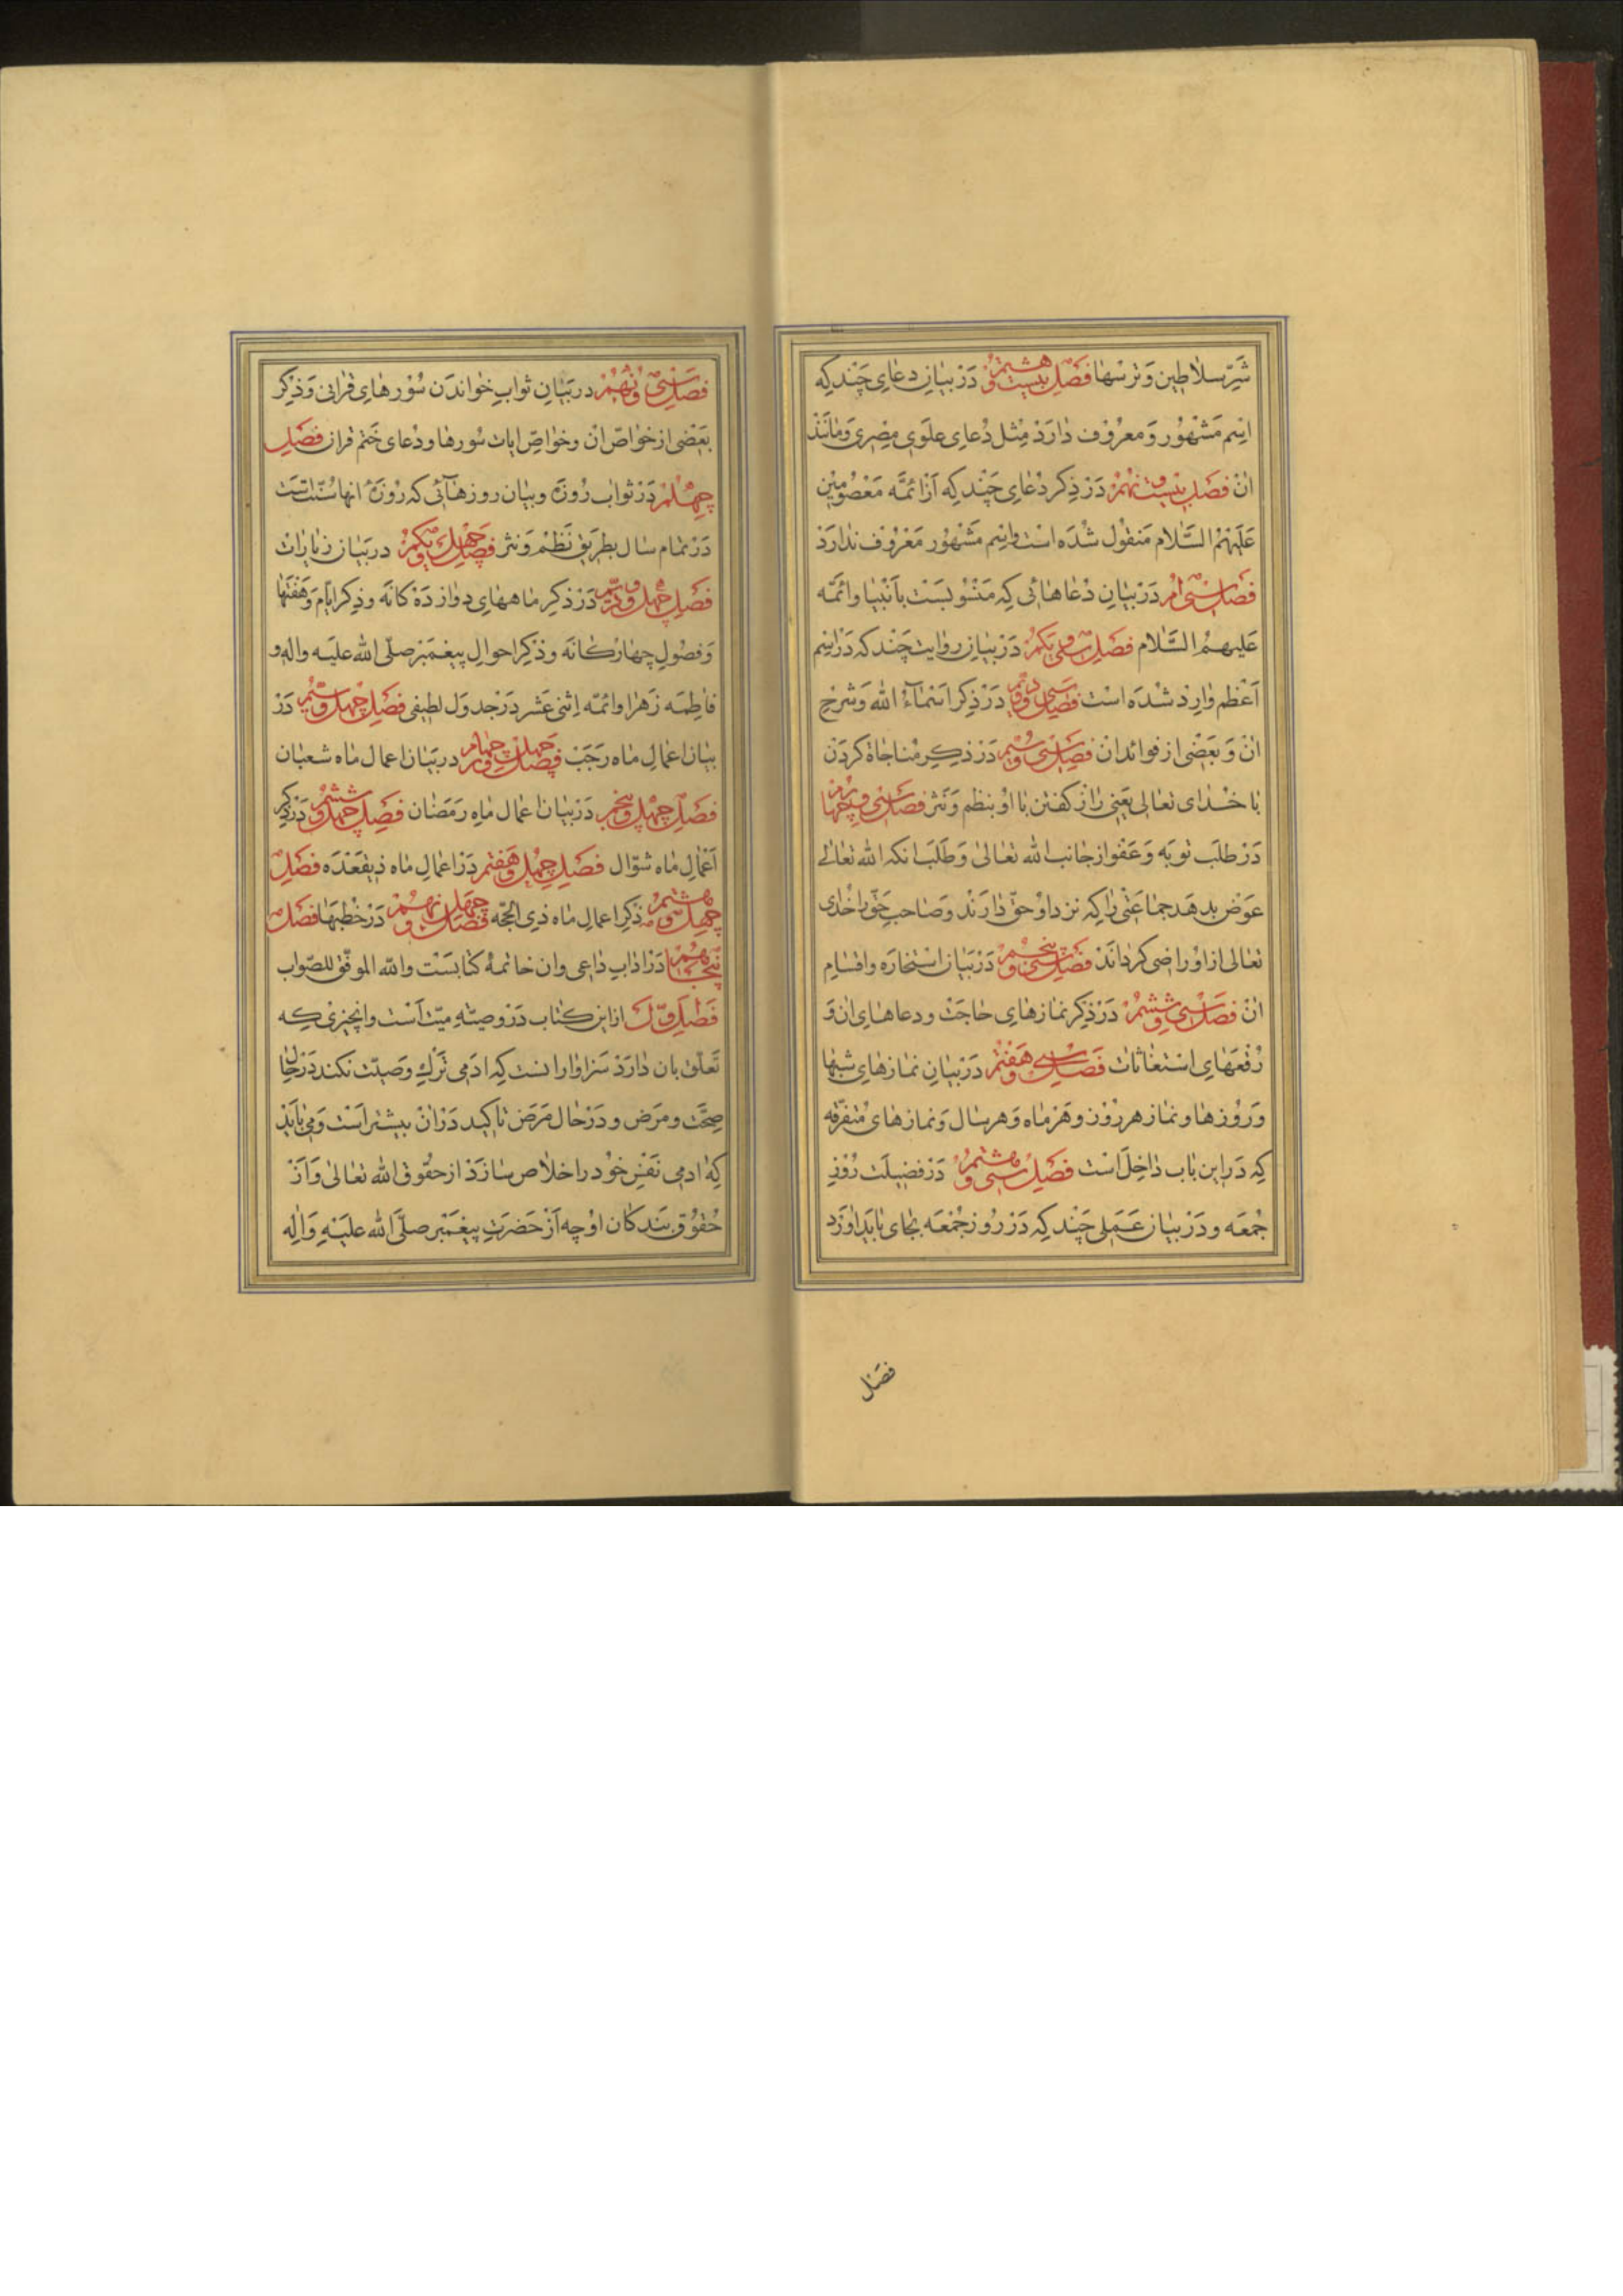 شَرِّ سلاطین وَ ترسها فصل بیست و هشتم دَر بیان دعای چَند که
اسم مَشهور وَ معروف دارَد مثل دُعای علوی مصری وَ مانَند
ان فصل بیست و نهم دَر ذکر دُعای چَند که اَز ائمّه مَعصُومین
عَلَیهمُ السَّلام مَنقول شُدَه است و اسم مَشهُور مَعرُوف ندارَد
فصل سی ام دَر بیان دُعاهائی که مَنسُوبَست بانبیا و ائمّه
عَلیهمُ السَّلام فصل سی و یکم دَر بیان روایت چَند که دَر اسم
اَعظم وارد شدَه است فصل سی و دویم دَر ذکر اَسمآءُ الله وَ شرح
ان وَ بَعضی از فوائد ان فصل سی و سیم دَر ذکر مُناجاة کردَن
با خُدای تعالی یَعنی راز کفتن با او بنظم وَ نثر فصل سی و چهارم
دَر طلَب توبَه وَ عَفو از جانب الله تعالی وَ طَلَب انکه الله تعالی
عوَض بدهَد جماعتی را که نزد او حقّ دارَند وَ صاحب حَقّ را خدای
تعالی از او راضی کرداند فصل سی و پنجم دَر بَیان استخارَه و اقسام
ان فصل سی و ششم دَر ذکر نمازهای حاجَت و دعاهای ان وَ
رُقعَهای استغاثات فصل سی و هَفتم دَر بیان نمازهای شبها
وَ رُوزها و نماز هر روز و هَر ماه وَ هر سال وَ نمازهای مُتفرّقه
که دَر این باب داخلَ است فصل سی و هشتم دَر فضیلَت رُوز
جُمعَه و دَر بیان عَمَلی چَند که دَر رُوز جُمعَه بجای بایَد اورد
فصل
فصل سی و نُهُم در بَیان ثواب خواندَن سُورهای قرانی وَ ذکر
بَعضی از خواصّ ان و خواصّ ایات سُورها و دُعای خَتم قران فصل
چهلم دَر ثواب رُوزَه و بیان روزهائی که رُوزَۀ انها سُنّت است
دَر تمام سال بطریق نَظم وَ نثر فصل چهل و یکم در بیان زیارات
فصل چهل و دویم دَر ذکر ماههای دوازدَه کانَه و ذکر ایّام وَ هَفتَها
وَ فصُول چهارکانَه و ذکر احوال پیغمَبَر صلّی الله علیَه و اله و
فاطمَه زَهرا و ائمّه اثنی عَشَر دَر جدوَل لطیفی فصل چهل و سیم دَر
بیان اعمال ماه رَجَب فصل چهل و چهارم در بَیان اعمال ماه شعبان
فصل چهل و پنجم دَر بیان اعمال ماه رَمَضان فصل چهل و ششم دَر ذکر
اَعمال ماه شوّال فصل چهل و هَفتم دَر اعمال ماه ذیقَعدَه فصل
چهل و هشتم ذکر اعمال ماه ذی الحجّه فصل چهل و نهم دَر خطبَها فصل
پنجاهُم دَر اداب داعی و ان خاتمۀ کتابَست والله الموفّق للصّواب
فصل اوّل از این کتاب دَر وصیّه میّت اَست و انچیزی که
تَعلّق بان دارَد سَزاوار انست که ادَمی تَرک وصیّت نکند دَر حال
صِحَّت و مرَض و دَر حال مَرَض تاکید دَر ان بیشتر اَست وَ می بایَد
که ادمی نَفس خُود را خلاص سازَد از حقُوق الله تعالی وَ اَز
حُقُوق بندکان او چه اَز حَضرَت پیغَمبر صلَّی الله علیَه وَ اله